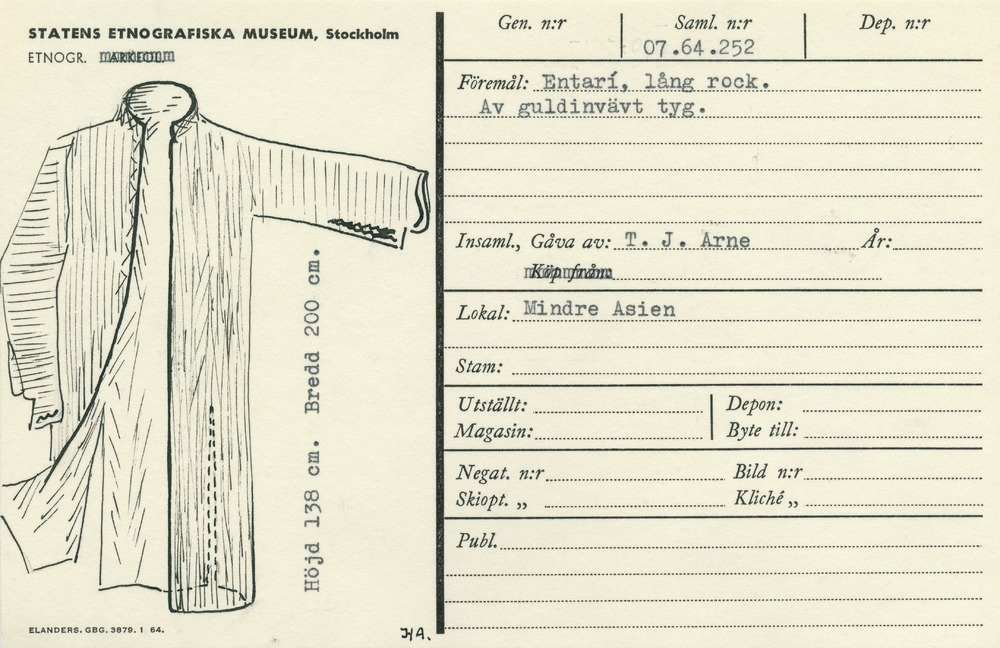 STATENS ETNOGRAFISKA MUSEUM, Stockholm
ETNOGR. ARKEOL.
Höjd 138 cm. Bredd 200 cm.
ELANDERS. GBG. 3879. 1 64.
HA.
Gen. n:r Saml. n:r Dep. n:r
07.64.252
Föremål: Entarí, lång rock.
Av guldinvävt tyg.
Insaml., Gåva av: T. J. Arne År:
Köp från:
Lokal: Mindre Asien
Stam:
Utställt: Depon:
Magasin: Byte till:
Negat. n:r Bild n:r
Skiopt. „ Kliché „
Publ.